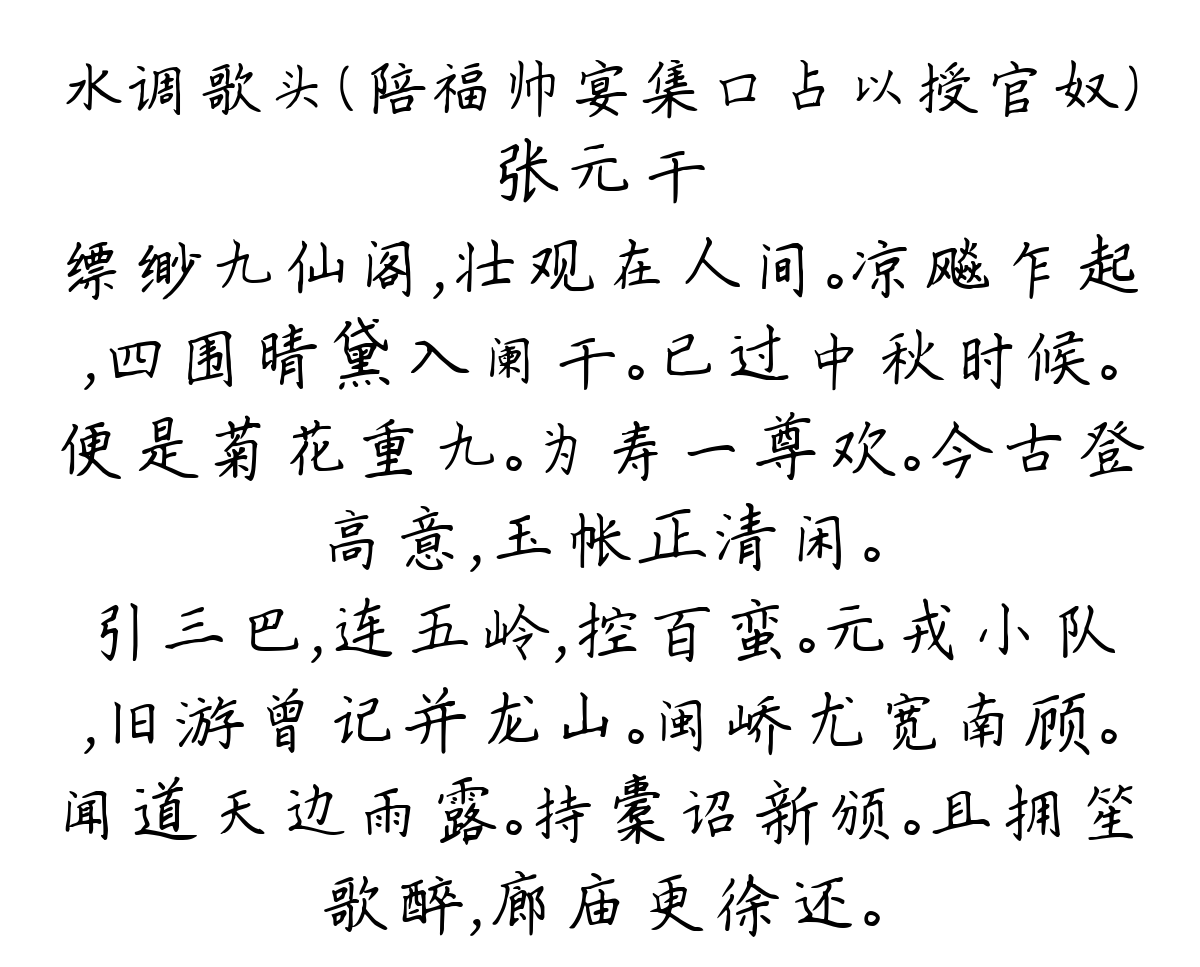 水调歌头(陪福帅宴集口占以授官奴)
张元干
缥缈九仙阁,壮观在人间。凉飚乍起
,四围晴黛入阑干。已过中秋时候。
便是菊花重九。为寿一尊欢。今古登
高意,玉帐正清闲。
引三巴,连五岭,控百蛮。元戎小队
,旧游曾记并龙山。闽峤尤宽南顾。
闻道天边雨露。持橐诏新颁。且拥笙
歌醉,廊庙更徐还。